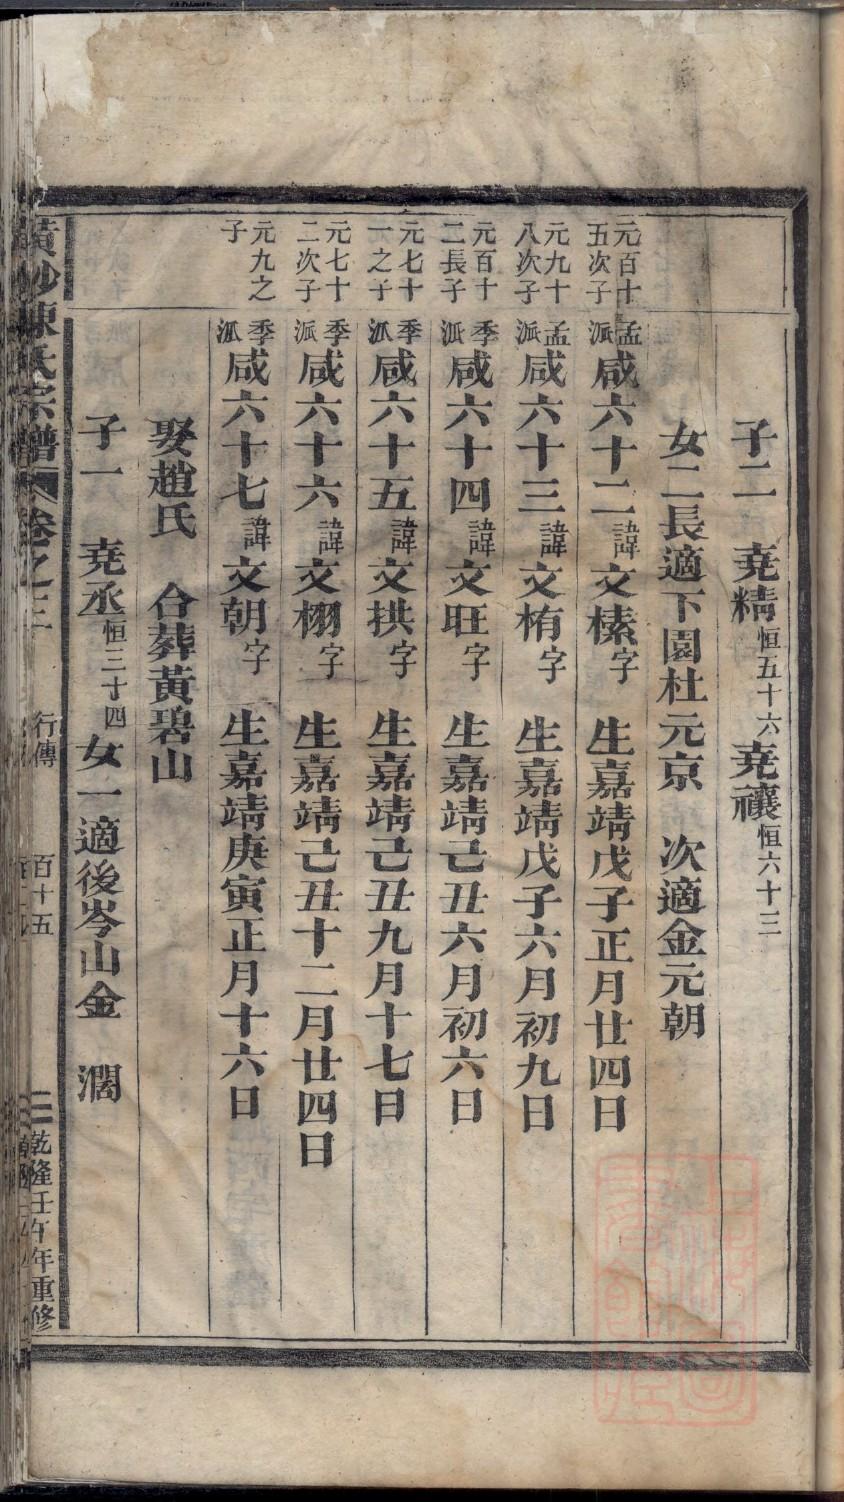 子二 堯精恒五十六堯禳恒六十三
女二長適下園杜元京 次適金元朝
元百十五次子 孟派咸六十二諱文榛字 生嘉靖戊子正月廿四日
元九十八次子 孟派咸六十三諱文栯字 生嘉靖戊子六月初九日
元百十二長子 季派咸六十四諱文旺字 生嘉靖己丑六月初六日
元七十一之子 季派咸六十五諱文拱字 生嘉靖己丑九月十七日
元七十二次子 季派咸六十六諱文栩字 生嘉靖己丑十二月廿四日
元九之子 季派咸六十七諱文朝字 生嘉靖庚寅正月十六日
娶趙氏 合葬黃碧山
子一 堯丞恒三十四女一適後岑山金 濶
黃沙陳氏宗譜 卷之三 行傳 百十五 乾隆壬午年重修